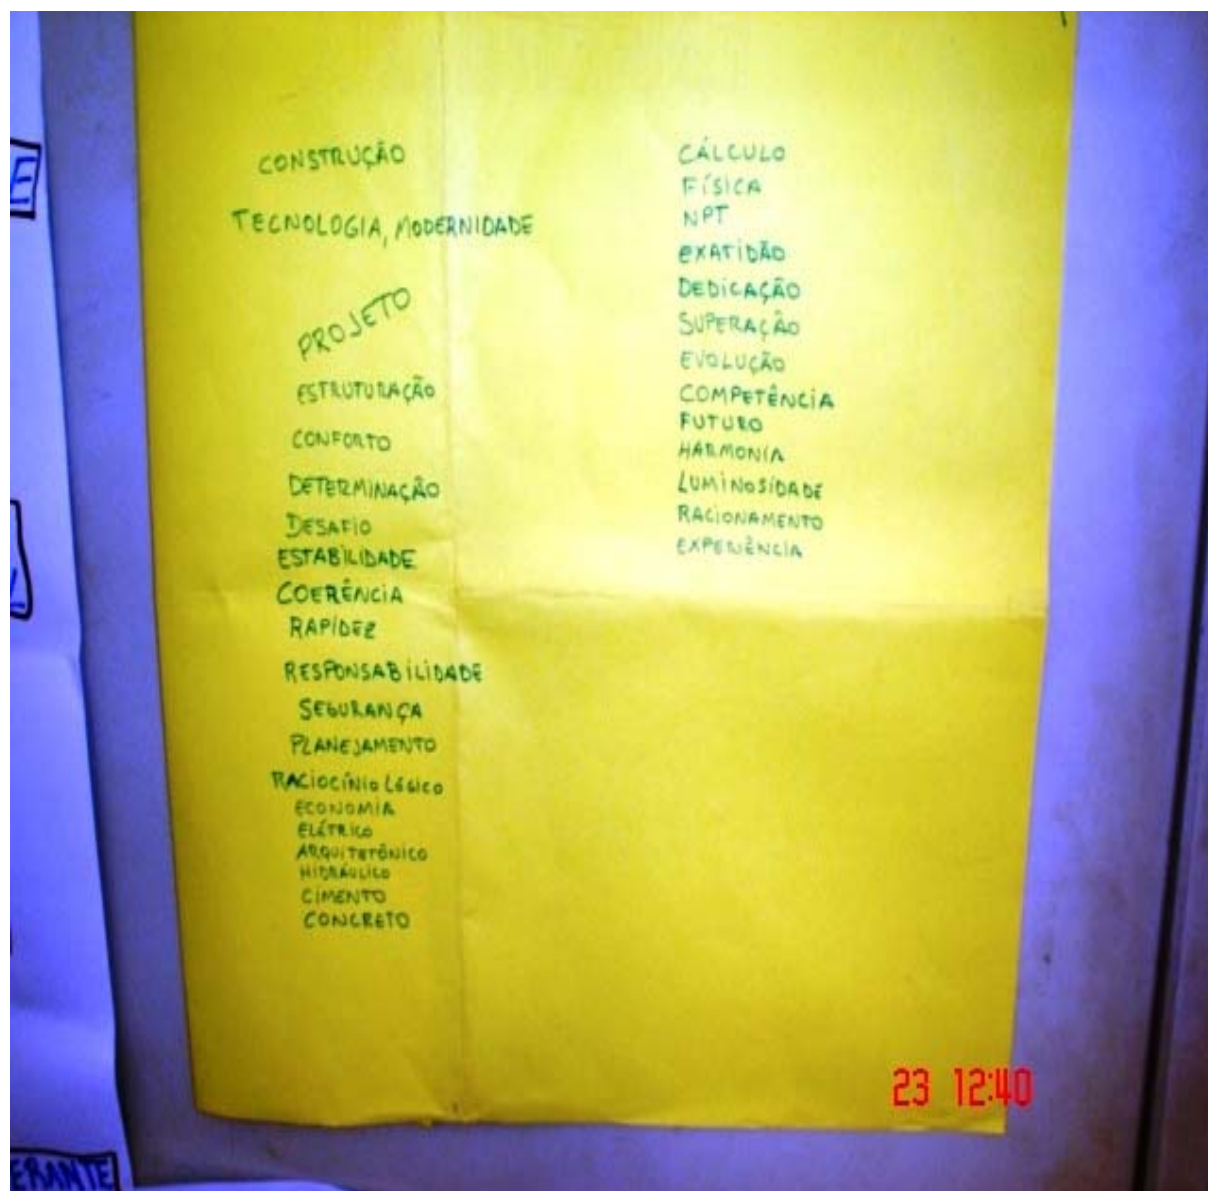 CONSTRUÇÃO
TECNOLOGIA, MODERNIDADE
PROJETO
ESTRUTURAÇÃO
CONFORTO
DETERMINAÇÃO
DESAFIO
ESTABILIDADE
COERÊNCIA
RAPIDEZ
RESPONSABILIDADE
SEGURANÇA
PLANEJAMENTO
RACIOCÍNIO LÓGICO
ECONOMIA
ELÉTRICO
ARQUITETÔNICO
HIDRÁULICO
CIMENTO
CONCRETO
CÁLCULO
FÍSICA
NPT
EXATIDÃO
DEDICAÇÃO
SUPERAÇÃO
EVOLUÇÃO
COMPETÊNCIA
FUTURO
HARMONIA
LUMINOSIDADE
RACIONAMENTO
EXPERIÊNCIA
23 12:40
E
ERANTE